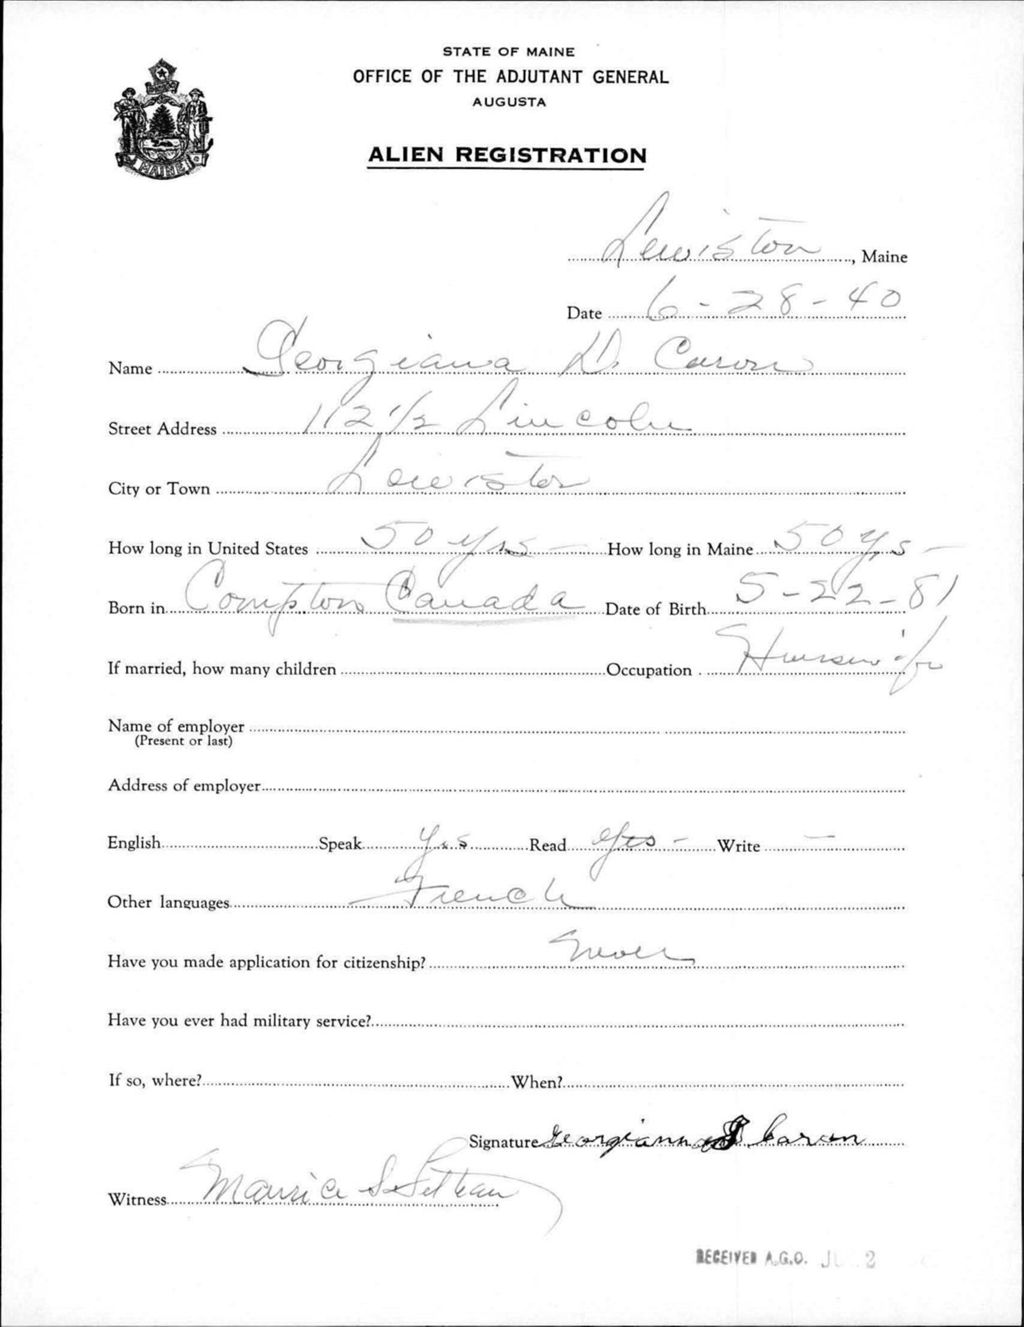 STATE OF MAINE
OFFICE OF THE ADJUTANT GENERAL
AUGUSTA
ALIEN REGISTRATION
Lewiston, Maine
Date 6-28-40
Name Georgiana D. Caron
Street Address 112 1/2 Lincoln
City or Town Lewiston
How long in United States 50 yrs - How long in Maine 50 yrs -
Born in Compton Canada Date of Birth 5-22-81
If married, how many children Occupation Housewife
Name of employer
(Present or last)
Address of employer
English Speak Yes Read Yes - Write -
Other languages French
Have you made application for citizenship?
Have you ever had military service?
If so, where? When?
Signature Georgianna Caron
Witness Maurice
RECEIVED A.G.O. 2
MAINE